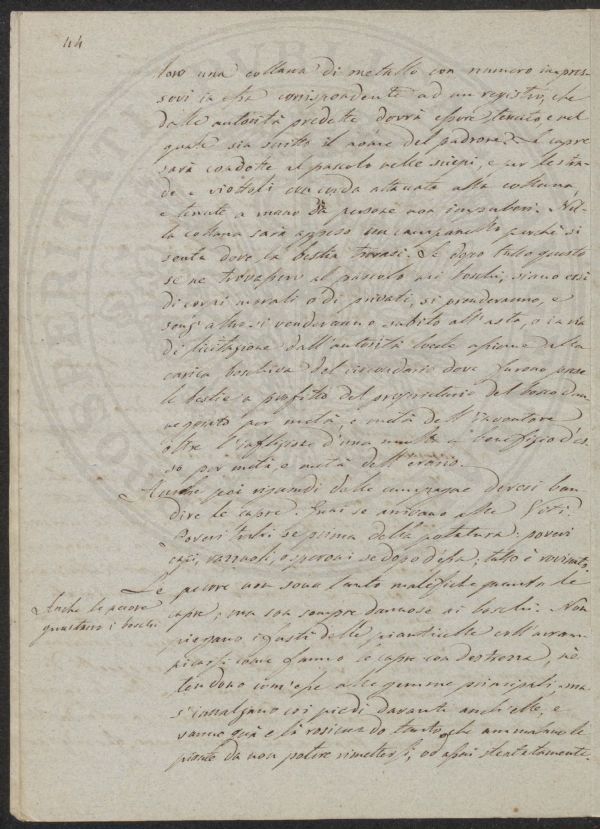 44
loro una collana di metallo con numero impres-
sovi in essa corrispondente ad un registro, che
dalle autorità predette dovrà essere tenuto e nel
quale sia scritto il nome del padrone. Le capre
sarà condotte al pascolo nelle siepi, e per le stra-
de e viottoli con corda attaccata alla collana,
e tenute a mano da persone non impuberi. Nel-
la collana sarà appeso un campanello perchè si
senta dove la bestia trovasi. Se dopo tutto questo
se ne trovassero al pascolo nei boschi, siano essi
di corpi morali o di privati, si prenderanno, e
senz'altro si venderanno subito all'asta, o in via
di licitazione dall'autorità locale
carica boschiva del circondario dove furono prese
le bestie a profitto del proprietario del bosco dan-
neggiato per metà, e metà dell'inventore
oltre l'inflizione d'una multa a benefizio d'es-
so per metà, e metà dell'erario.
Anche poi riguardi delle campagne devesi ban-
dire le capre. Guai se arrivano alle Viti.
Poveri tralci se prima della potatura; poveri
capi, o speroni se dopo d'essa; tutto è rovinato.
Le pecore non sono tanto malefiche quanto le
Anche le pecore
guastano i boschi
capre; ma son sempre dannose ai boschi. Non
piegano i fusti delle pianticelle coll'arram-
picarsi come fanno le capre con destrezza, nè
tendono com'esse alle gemme principali; ma
s'innalzano coi piedi davanti anch'elle, e
vanno quà e là rosicando tanto che ammalano le
piante da non potere rimettersi, od assai stentatamente.